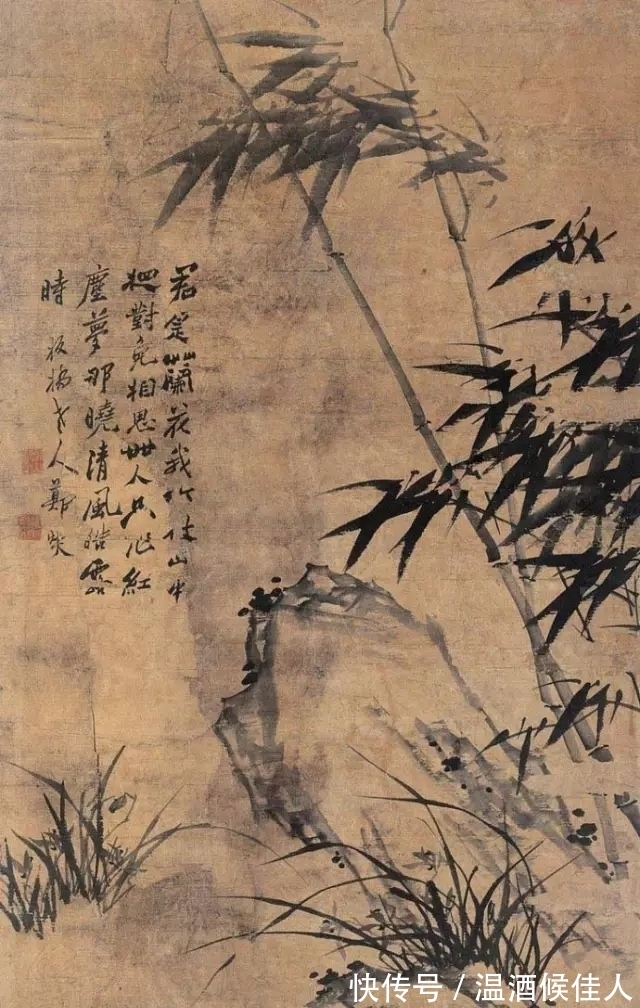 君是蘭花我竹枝山中
相對免相思世人只作紅
塵夢那曉清風皓露
時 板橋老人鄭燮
快传号 / 温酒候佳人